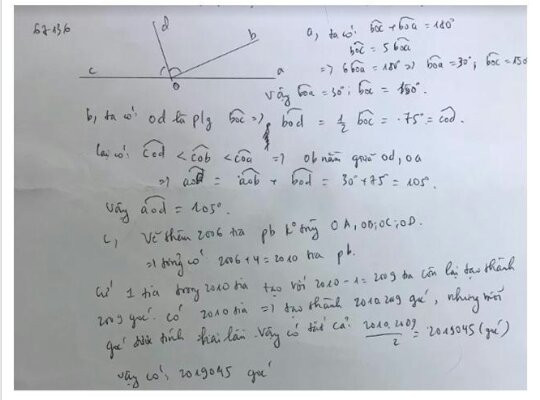 d
b
c
a
O
a, ta có: bOc + bOa = 180°
bOc = 5 bOa
=> 6 bOa = 180° => bOa = 30°; bOc = 150
Vậy bOa = 30°; bOc = 150°.
b, ta có: Od là plg bOc => bOd = 1/2 bOc = 75° = cOd.
lại có: cOd < cOb < cOa => Ob nằm giữa Od, Oa
=> aOd = aOb + bOd = 30° + 75° = 105°.
Vậy aOd = 105°.
c, Vẽ thêm 2006 tia pb k° trùng OA, OB; OC; OD.
=> trong có 2006 + 4 = 2010 tia pb.
Cứ 1 tia trong 2010 tia tạo với 2010 - 1 = 2009 tia còn lại tạo thành
2009 góc. Có 2010 tia => tạo thành 2010.2009 góc, nhưng mỗi
góc được tính hai lần. Vậy có tất cả: 2010.2009/2 = 2019045 (góc)
Vậy có: 2019045 góc